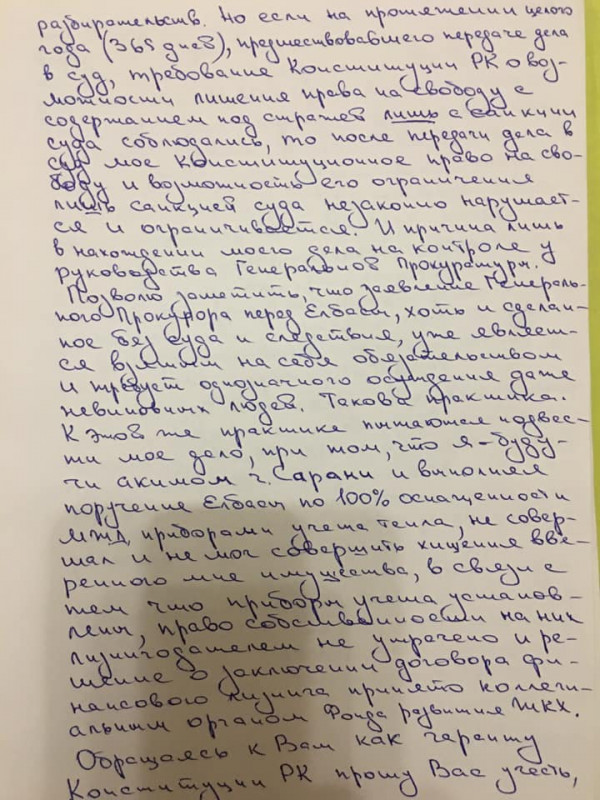 разбирательств. Но если на протяжении целого
года (365 дней), предшествовавшего передаче дела
в суд, требование Конституции РК о воз-
можности лишения права на свободу с
содержанием под стражей лишь с санкции
суда соблюдались, то после передачи дела в
суд мое Конституционное право на сво-
боду и возможность его ограничения
лишь санкцией суда незаконно нарушает-
ся и ограничивается. И причина лишь
в нахождении моего дела на контроле у
руководства Генеральной Прокуратуры.
Позволю заметить, что заявление Генераль-
ного Прокурора перед Елбасы, хоть и сделан-
ное без суда и следствия, уже являет-
ся взятым на себя обязательством
и требует однозначного осуждения даже
невиновных людей. Такова практика.
К этой же практике пытаются подвес-
ти мое дело, при том, что я - буду-
чи акимом г. Сарани и выполняя
поручение Елбасы по 100% оснащенности
МЖД приборами учета тепла, не совер-
шал и не мог совершить хищения вве-
ренного мне имущества, в связи с
тем что приборы учета установ-
лены, право собственности на них
лизингодателем не утрачено и ре-
шение о заключении договора фи-
нансового лизинга принято коллеги-
альным органом Фонда развития ЖКХ.
Обращаясь к Вам как гаранту
Конституции РК прошу Вас учесть,